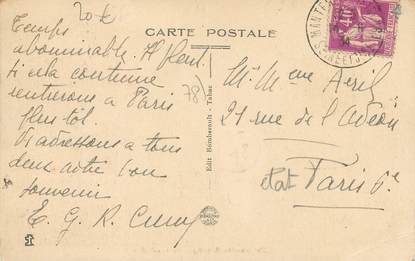 20 f
CARTE POSTALE
Temps
abominable. Il pleut.
Si cela continue
rentrerons à Paris
plus tôt.
Vs adressons a tous
deux notre bon
souvenir
E. G. R.
78)
Edit Bombereault - Tabac
MANTES
40c
M. Mme
21 rue de l'Odéon
Paris 6e